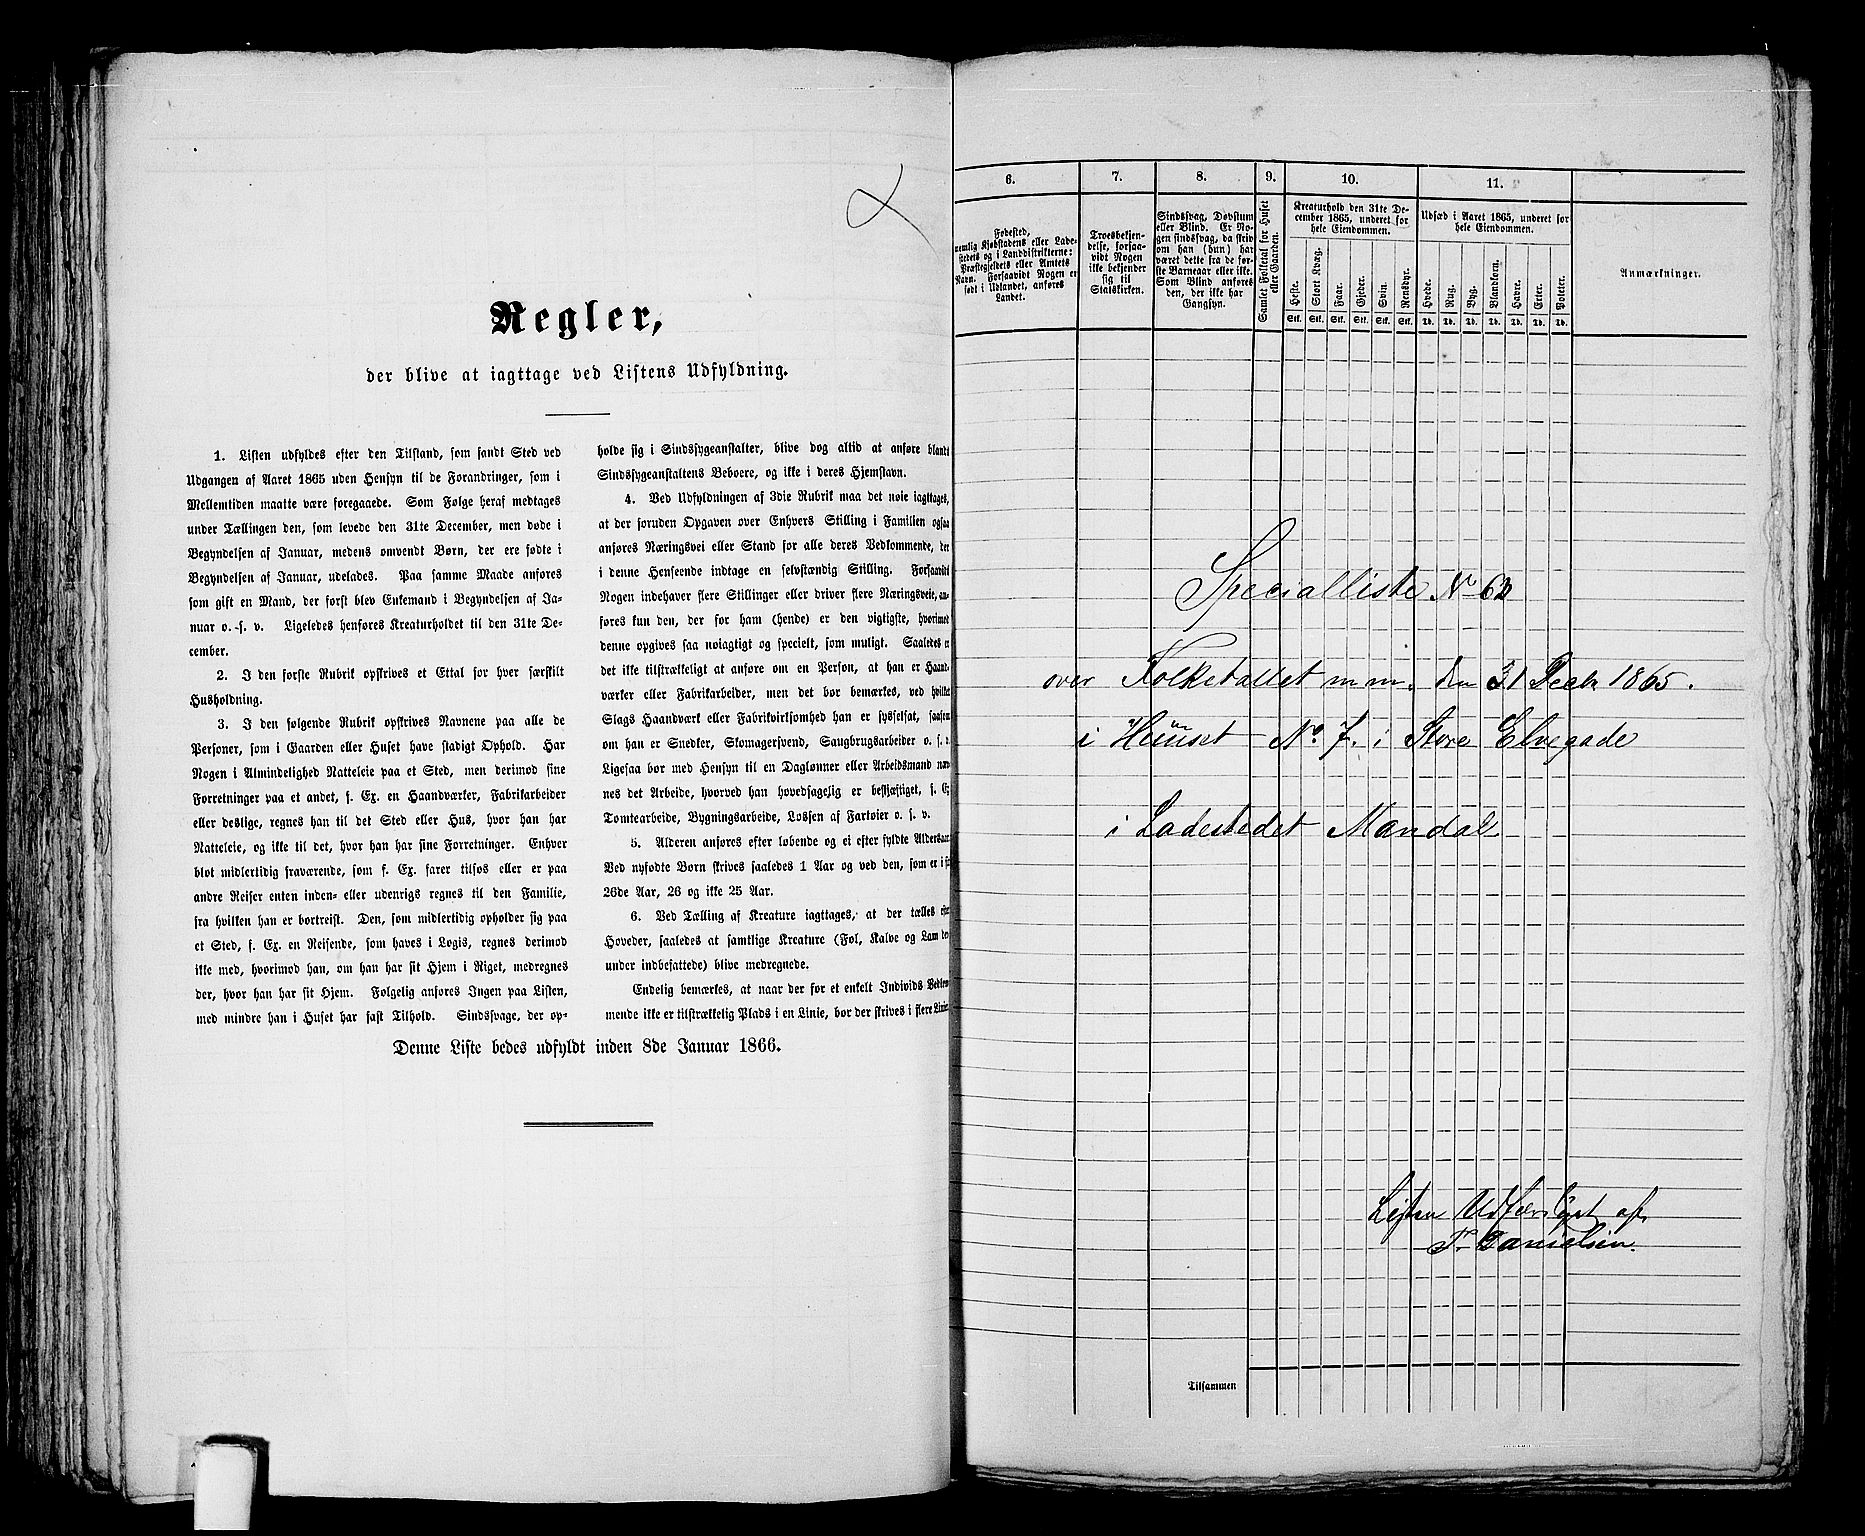 Regler,
der blive at iagttage ved Listens Udfyldning.
1. Listen udfyldes efter den Tilstand, som fandt Sted ved
Udgangen af Aaret 1865 uden Hensyn til de Forandringer, som i
Mellemtiden maatte være foregaaede. Som Følge heraf medtages
under Tællingen den, som levede den 31te December, men døde i
Begyndelsen af Januar, medens omvendt Børn, der ere fødte i
Begyndelsen af Januar, udelades. Paa samme Maade anføres
som gift en Mand, der først blev Enkemand i Begyndelsen af Ja-
nuar o. s. v. Ligeledes henføres Kreaturholdet til den 31te De-
cember.
2. I den første Rubrik opskrives et Ettal for hver særskilt
Husholdning.
3. I den følgende Rubrik opskrives Navnene paa alle de
Personer, som i Gaarden eller Huset have stadigt Ophold. Har
Nogen i Almindelighed Natteleie paa et Sted, men derimod sine
Forretninger paa et andet, f. Ex. en Haandværker, Fabrikarbeider
eller deslige, regnes han til det Sted eller Hus, hvor han har
Natteleie, og ikke til det, hvor han har sine Forretninger. Enhver
blot midlertidig fraværende, som f. Ex. farer tilsøs eller er paa
andre Reiser enten inden- eller udenrigs regnes til den Familie,
fra hvilken han er bortreist. Den, som midlertidig opholder sig paa
et Sted, f. Ex. en Reisende, som haves i Logis, regnes derimod
ikke med, hvorimod han, om han har sit Hjem i Riget, medregnes
der, hvor han har sit Hjem. Følgelig anføres Ingen paa Listen,
med mindre han i Huset har fast Tilhold. Sindssvage, der op-
holde sig i Sindssygeanstalter, blive dog altid at anføre blandt
Sindssygeanstaltens Beboere, og ikke i deres Hjemstavn.
4. Ved Udfyldningen af 3die Rubrik maa det nøie iagttages,
at der foruden Opgaven over Enhvers Stilling i Familien ogsaa
anføres Næringsvei eller Stand for alle deres Vedkommende, der
i denne Henseende indtage en selvstændig Stilling. Forsaavidt
Nogen indehaver flere Stillinger eller driver flere Næringsveie, an-
føres kun den, der for ham (hende) er den vigtigste, hvorimod
denne opgives saa nøiagtigt og specielt, som muligt. Saaledes er
det ikke tilstrækkeligt at anføre om en Person, at han er Haand-
værker eller Fabrikarbeider, men det bør bemærkes, ved hvilket
Slags Haandværk eller Fabrikvirksomhed han er sysselsat, saasom
om han er Snedker, Skomagersvend, Saugbrugsarbeider o. s. v.
Ligesaa bør med Hensyn til en Daglønner eller Arbeidsmand næv-
nes det Arbeide, hvorved han hovedsagelig er beskjæftiget, f. Ex.
Tomtearbeide, Bygningsarbeide, Lossen af Fartøier o. s. v.
5. Alderen anføres efter løbende og ei efter fyldte Aldersaar.
Ved nyfødte Børn skrives saaledes 1 Aar og ved den, som er i sit
26de Aar, 26 og ikke 25 Aar.
6. Ved Tælling af Kreature iagttages, at der tælles efter
Hoveder, saaledes at samtlige Kreature (Føl, Kalve og Lam der-
under indbefattede) blive medregnede.
Endelig bemærkes, at naar der for et enkelt Individs Vedkom-
mende ikke er tilstrækkelig Plads i en Linie, bør der skrives i flere Linier.
Denne Liste bedes udfyldt inden 8de Januar 1866.
6. 7. 8. 9. 10. 11.
Fødested,
nemlig Kjøbstadens eller Lade-
stedets og i Landdistrikterne:
Præstegjeldets eller Amtets
Navn. Forsaavidt Nogen er
født i Udlandet, anføres
Landet.
Troesbekjen-
delse, forsaa-
vidt Nogen
ikke bekjender
sig til
Statskirken.
Sindssvag, Døvstum
eller Blind. Er No-
gen sindssvag, da skriv
om han (hun) har
været dette fra de før-
ste Barneaar eller ikke.
Som Blind anføres
den, der ikke har
Gangsyn.
Samlet Folketal for Huset
eller Gaarden.
Kreaturhold den 31te De-
cember 1865, underet for
hele Eiendommen.
Heste. Stort Kvæg. Faar. Gjeder. Svin. Rensdyr.
Stk. Stk. Stk. Stk. Stk. Stk.
Udsæd i Aaret 1865, underet for
hele Eiendommen.
Hvede. Rug. Byg. Blandkorn. Havre. Erter. Poteter.
Td. Td. Td. Td. Td. Td. Td.
Anmærkninger.
Specialliste No 62
over Folketallet m.m. den 31 Decbr 1865.
i Huuset No. 7. i Store Elvegade
i Ladestedet Mandal
Listen Udfærdiget af
T. Danielsen.
Tilsammen